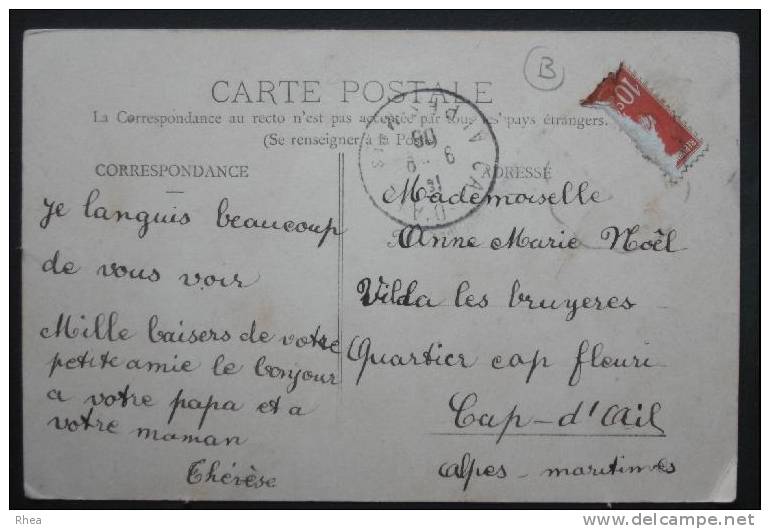 B
CARTE POSTALE
La Correspondance au recto n'est pas acceptée par tous les pays étrangers.
(Se renseigner à la Poste)
10c
CORRESPONDANCE
ADRESSÉ
Je languis beaucoup
de vous voir
Mille baisers de votre
petite amie le bonjour
a votre papa et a
votre maman
Thérèse
Mademoiselle
Anne Marie Noël
Villa les bruyeres
Quartier cap fleuri
Cap-d'Ail
Alpes-maritimes
Rhea
http://www.delcampe.net